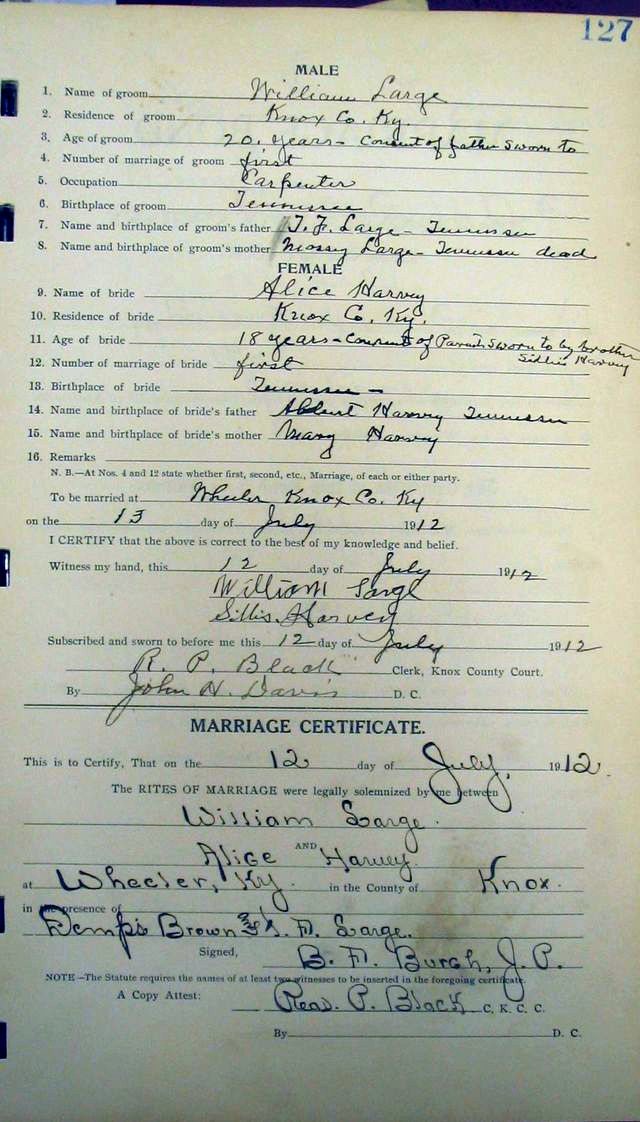 127
MALE
1. Name of groom William Large
2. Residence of groom Knox Co. Ky.
3. Age of groom 20. years - Consent of father sworn to
4. Number of marriage of groom first
5. Occupation Carpenter
6. Birthplace of groom Tennessee
7. Name and birthplace of groom's father T. F. Large - Tennessee
8. Name and birthplace of groom's mother Mossy Large - Tennessee dead
FEMALE
9. Name of bride Alice Harvey
10. Residence of bride Knox Co. Ky.
11. Age of bride 18 years - Consent of Parents sworn to by brother
Sillis Harvey
12. Number of marriage of bride first
13. Birthplace of bride Tennessee -
14. Name and birthplace of bride's father Harvey Tennessee
15. Name and birthplace of bride's mother Mary Harvey
16. Remarks
N. B.—At Nos. 4 and 12 state whether first, second, etc., Marriage, of each or either party.
To be married at Wheeler Knox Co. Ky
on the 13 day of July 1912
I CERTIFY that the above is correct to the best of my knowledge and belief.
Witness my hand, this 12 day of July 1912
William Large
Sillis Harvey
Subscribed and sworn to before me this 12 day of July 1912
R. P. Black Clerk, Knox County Court.
By John H. Davis D. C.
MARRIAGE CERTIFICATE.
This is to Certify, That on the 12 day of July, 1912.
The RITES OF MARRIAGE were legally solemnized by me between
William Large.
AND
Alice Harvey.
at Wheeler, Ky. in the County of Knox.
in the presence of
Brown & Large.
Signed, B. F. Burch, J. P.
NOTE—The Statute requires the names of at least two witnesses to be inserted in the foregoing certificate.
A Copy Attest: P. Black C. K. C. C.
By D. C.